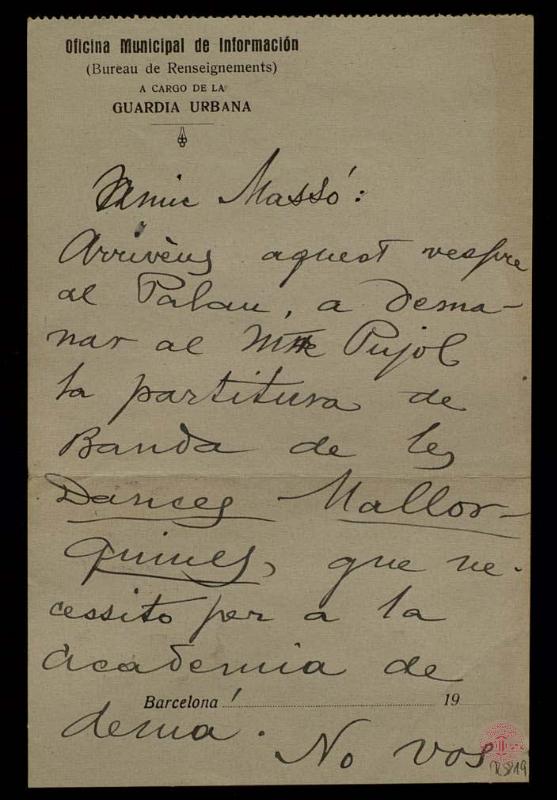 Oficina Municipal de Información
(Bureau de Renseignements)
A CARGO DE LA
GUARDIA URBANA
Amic Massó:
Arrivèus aquest vespre
al Palau, a dema-
nar al Mtre Pujol
la partitura de
Banda de les
Dances Mallor-
quines, que ne-
cessito per a la
Academia de
Barcelona 19
demá. No vos